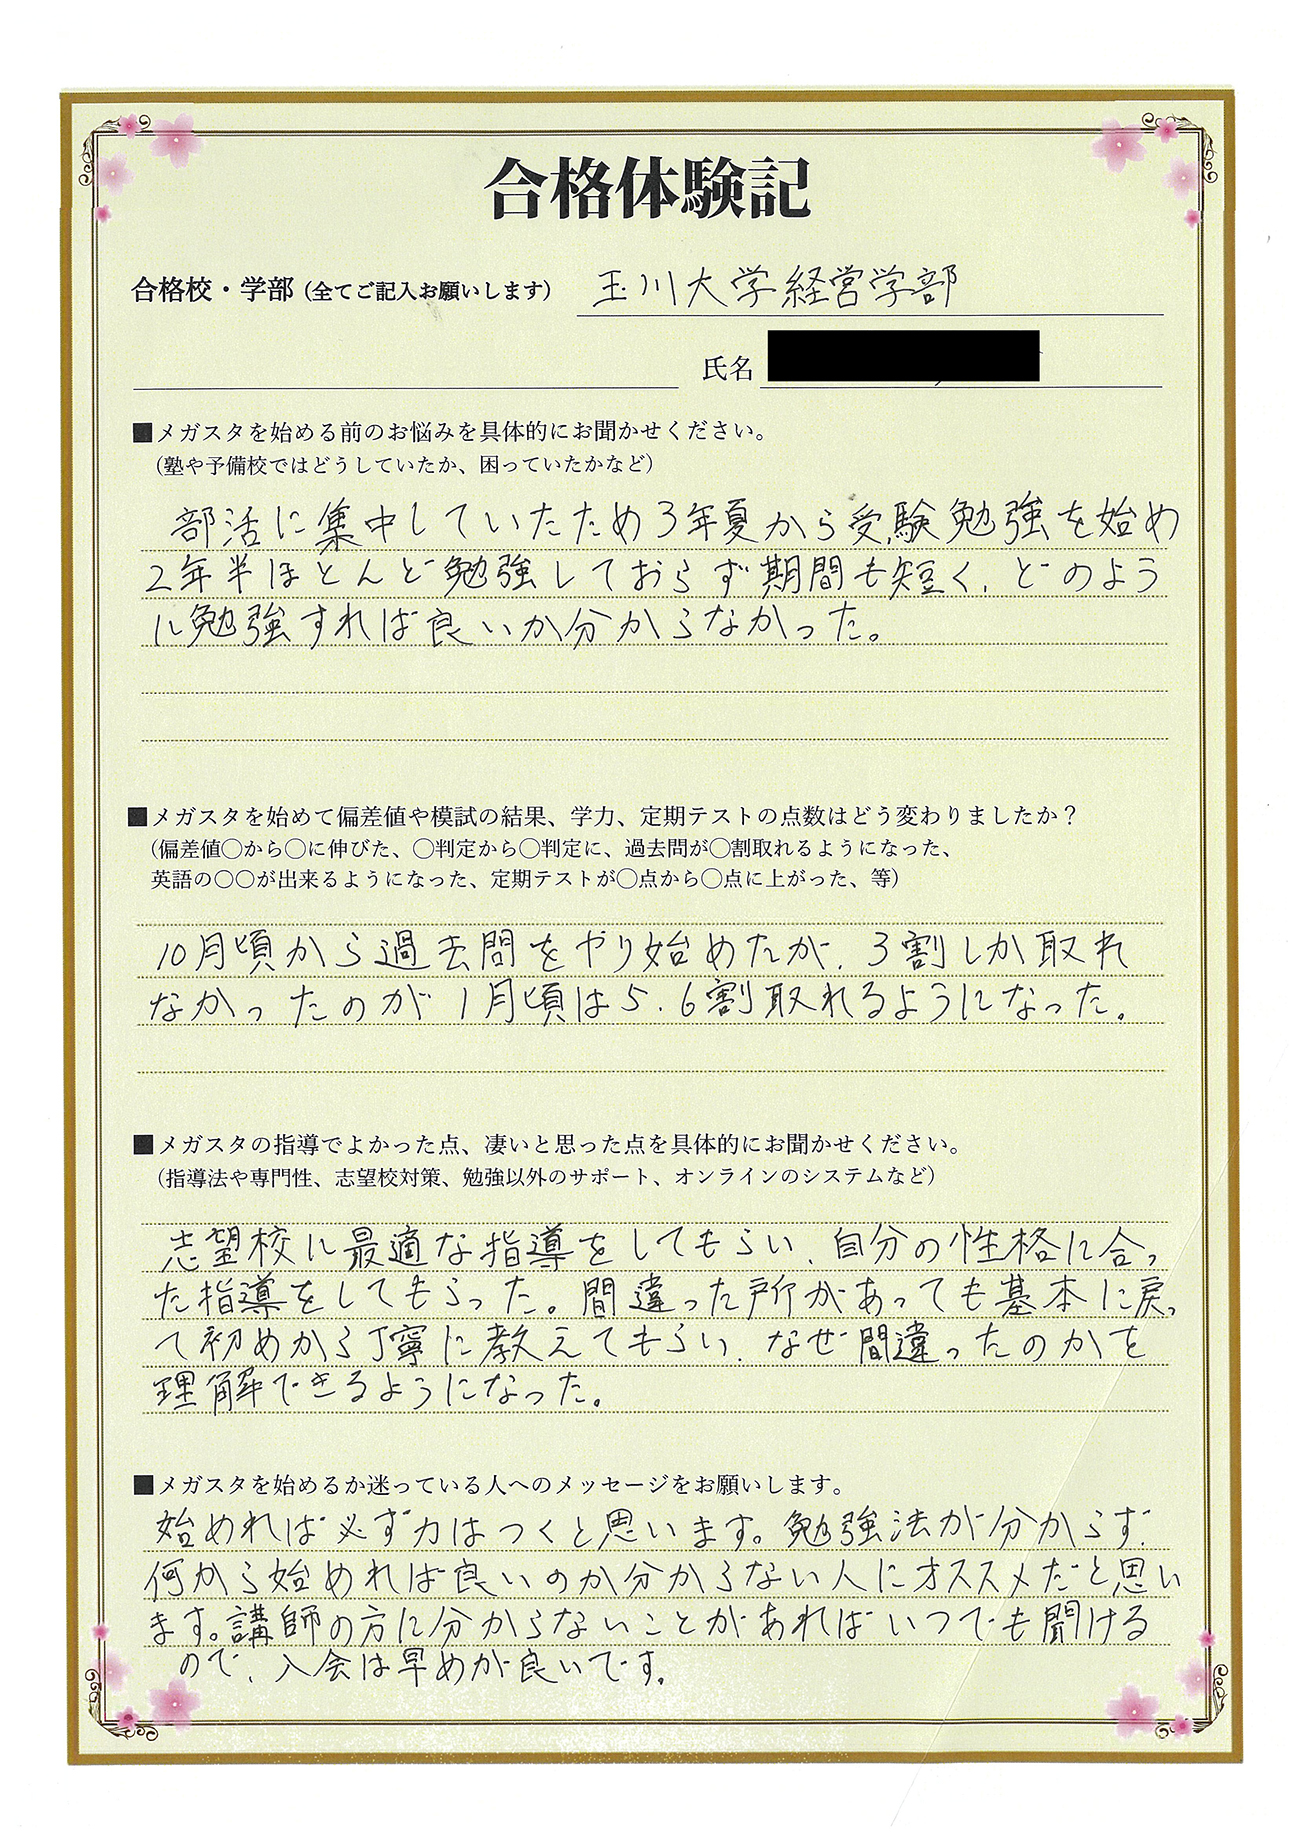 合格体験記
合格校・学部（全てご記入お願いします） 玉川大学経営学部
氏名
■メガスタを始める前のお悩みを具体的にお聞かせください。
（塾や予備校ではどうしていたか、困っていたかなど）
部活に集中していたため3年夏から受験勉強を始め
2年半ほとんど勉強しておらず期間も短く、どのよう
に勉強すれば良いか分からなかった。
■メガスタを始めて偏差値や模試の結果、学力、定期テストの点数はどう変わりましたか？
（偏差値〇から〇に伸びた、〇判定から〇判定に、過去問が〇割取れるようになった、
英語の〇〇が出来るようになった、定期テストが〇点から〇点に上がった、等）
10月頃から過去問をやり始めたが、3割しか取れ
なかったのが1月頃は5、6割取れるようになった。
■メガスタの指導でよかった点、凄いと思った点を具体的にお聞かせください。
（指導法や専門性、志望校対策、勉強以外のサポート、オンラインのシステムなど）
志望校に最適な指導をしてもらい、自分の性格に合っ
た指導をしてもらった。間違った所があっても基本に戻っ
て初めから丁寧に教えてもらい、なぜ間違ったのかを
理解できるようになった。
■メガスタを始めるか迷っている人へのメッセージをお願いします。
始めれば必ず力はつくと思います。勉強法が分からず、
何から始めれば良いのか分からない人にオススメだと思い
ます。講師の方に分からないことがあればいつでも聞ける
ので、入会は早めが良いです。